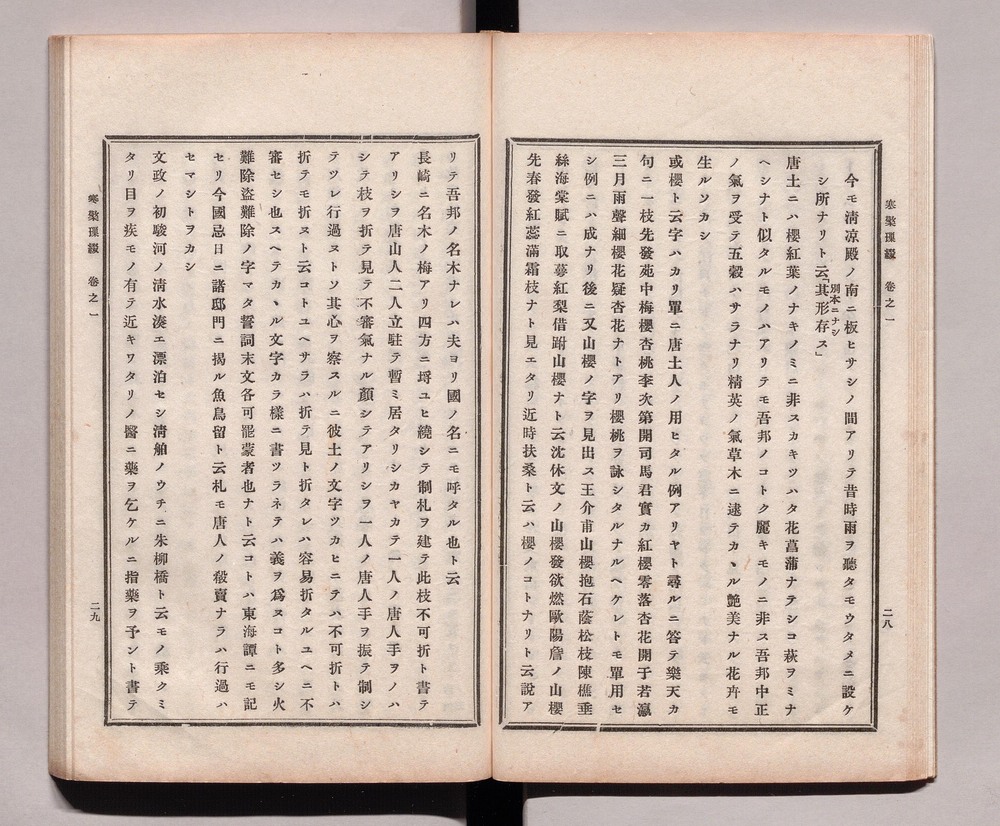 寒檠璅綴　卷之一
今モ清凉殿ノ南ニ板ヒサシノ間アリテ昔時雨ヲ聽タモウタメニ設ケ
シ所ナリト云「其形存ス」
別本ニナシ
唐土ニハ櫻紅葉ノナキノミニ非スカキツハタ花菖蒲ナテシコ萩ヲミナ
ヘシナト似タルモノハアリテモ吾邦ノコトク麗キモノニ非ス吾邦中正
ノ氣ヲ受テ五穀ハサラナリ精英ノ氣草木ニ逮テカヽル艶美ナル花卉モ
生ルソカシ
或櫻ト云字ハカリ單ニ唐土人ノ用ヒタル例アリヤト尋ルニ答テ樂天カ
句ニ一枝先發苑中梅櫻杏桃李次第開司馬君實カ紅櫻零落杏花開于若瀛
三月雨聲細櫻花疑杏花ナトアリ櫻桃ヲ詠シタルナルヘケレトモ單用セ
シ例ニハ成ナリ後ニ又山櫻ノ字ヲ見出ス王介甫山櫻抱石蔭松枝陳樵垂
絲海棠賦ニ取蕚紅梨借跗山櫻ナト云沈休文ノ山櫻發欲燃歐陽詹ノ山櫻
先春發紅蕊滿霜枝ナト見エタリ近時扶桑ト云ハ櫻ノコトナリト云說ア
二八
リテ吾邦ノ名木ナレハ夫ヨリ國ノ名ニモ呼タル也ト云
長崎ニ名木ノ梅アリ四方ニ埓ユヒ繞シテ制札ヲ建テ此枝不可折ト書テ
アリシヲ唐山人二人立駐テ暫ミ居タリシカヤカテ一人ノ唐人手ヲノハ
シテ枝ヲ折テ見テ不審氣ナル顏シテアリシヲ一人ノ唐人手ヲ振テ制シ
テツレ行過ヌトソ其心ヲ察スルニ彼土ノ文字ツカヒニテハ不可折トハ
折テモ折ヌト云コトユヘサラハ折テ見ト折タレハ容易折タルユヘニ不
審セシ也スヘテカヽル文字カラ樣ニ書ツラネテハ義ヲ爲ヌコト多シ火
難除盜難除ノ字マタ誓詞末文各可罷蒙者也ナト云コトハ東海譚ニモ記
セリ今國忌日ニ諸邸門ニ揭ル魚鳥留ト云札モ唐人ノ殺賣ナラハ行過ハ
セマシトヲカシ
文政ノ初駿河ノ清水湊エ漂泊セシ清舶ノウチニ朱柳橋ト云モノ乘クミ
タリ目ヲ疾モノ有テ近キワタリノ醫ニ藥ヲ乞ケルニ指藥ヲ予ント書テ
寒檠璅綴　卷之一
二九